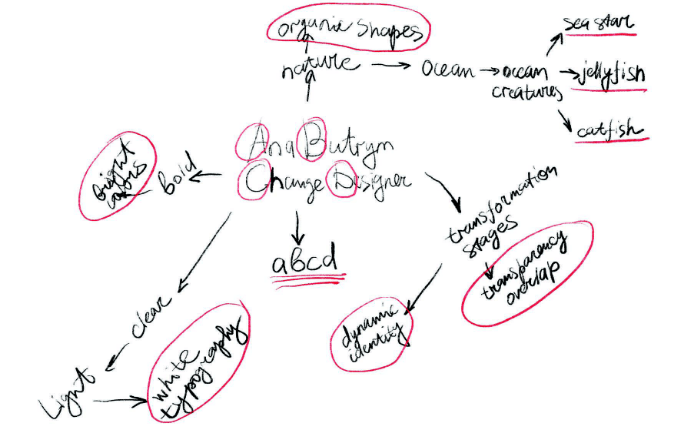 organic shapes
nature
ocean
ocean
creatures
sea star
jellyfish
catfish
Ana Butrym
Change Designer
bold
bright
colors
abcd
transformation
stages
transparency
overlap
dynamic
identity
clear
light
white
typography